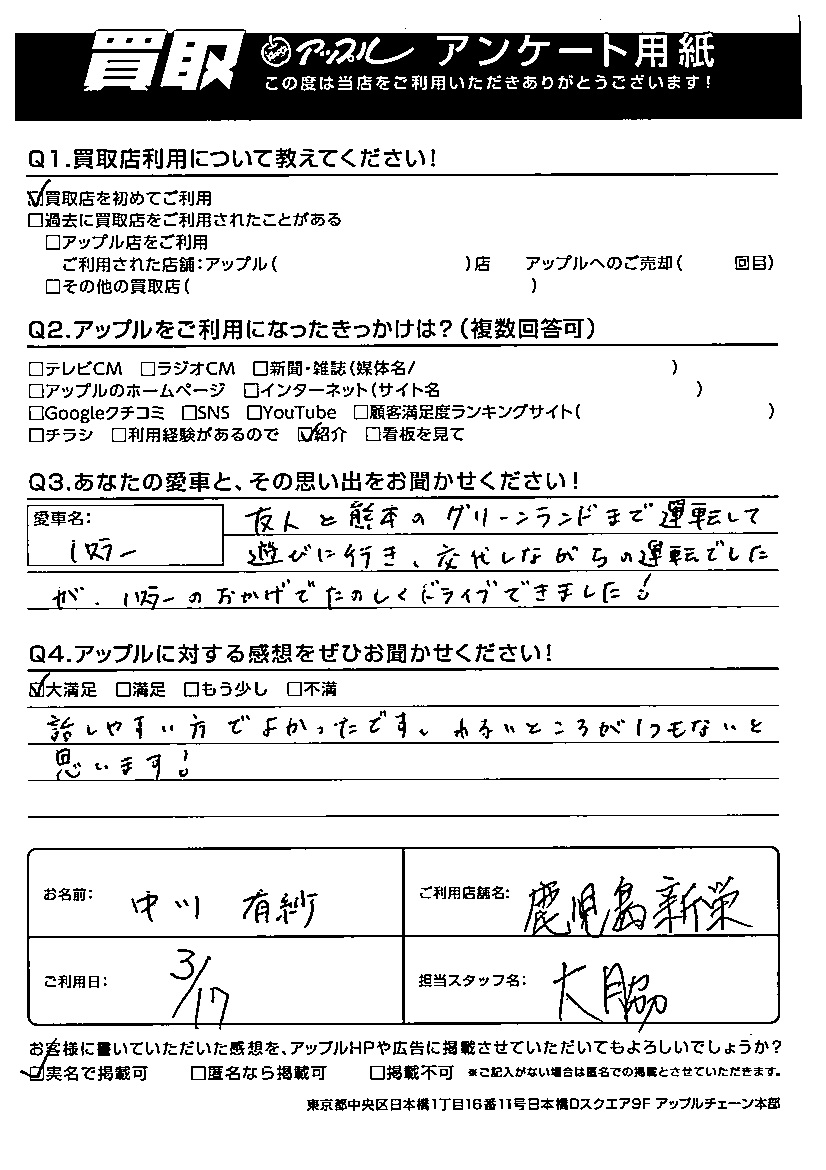 買取 アップル アンケート用紙
この度は当店をご利用いただきありがとうございます!
Q1.買取店利用について教えてください!
☑買取店を初めてご利用
□過去に買取店をご利用されたことがある
□アップル店をご利用
ご利用された店舗:アップル( )店 アップルへのご売却( 回目)
□その他の買取店( )
Q2.アップルをご利用になったきっかけは?(複数回答可)
□テレビCM □ラジオCM □新聞・雑誌(媒体名/ )
□アップルのホームページ □インターネット(サイト名 )
□Googleクチコミ □SNS □YouTube □顧客満足度ランキングサイト( )
□チラシ □利用経験があるので ☑紹介 □看板を見て
Q3.あなたの愛車と、その思い出をお聞かせください!
愛車名: 友人と熊本のグリーンランドまで運転して
遊びに行き、交代しながらの運転でした
が、 のおかげでたのしくドライブできました!
Q4.アップルに対する感想をぜひお聞かせください!
☑大満足 □満足 □もう少し □不満
話しやすい方でよかったです。わるいところが1つもないと
思います!
お名前: 中川 有紗 ご利用店舗名: 鹿児島新栄
ご利用日: 3/17 担当スタッフ名: 大脇
お客様に書いていただいた感想を、アップルHPや広告に掲載させていただいてもよろしいでしょうか?
☑実名で掲載可 □匿名なら掲載可 □掲載不可 ※ご記入がない場合は匿名での掲載とさせていただきます。
東京都中央区日本橋1丁目16番11号日本橋Dスクエア9F アップルチェーン本部